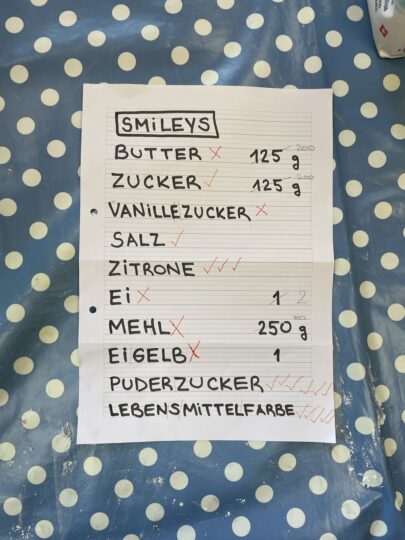 SMiLEYS
BUTTER x 125 g 200
ZUCKER ✓ 125 g 200
VANILLEZUCKER x
SALZ ✓
ZITRONE ✓✓✓
Ei x 1 2
MEHL x 250 g
EiGELB x 1
PUDERZUCKER ✓✓✓✓
LEBENSMITTELFARBE ✓✓✓✓